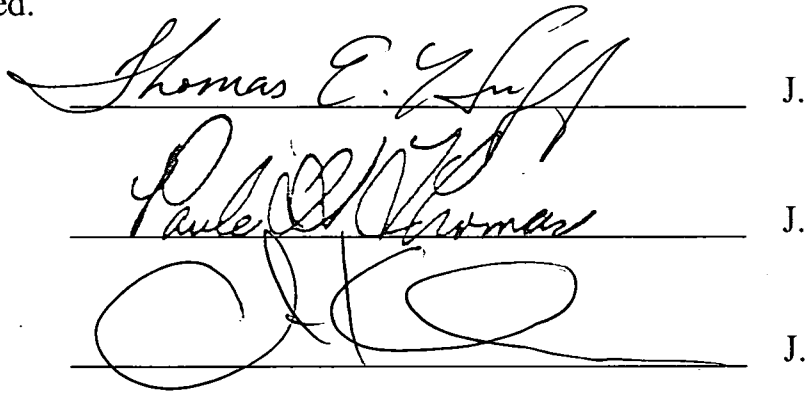 ed.
Thomas E. Huff J.
Paula Thomas J.
J.